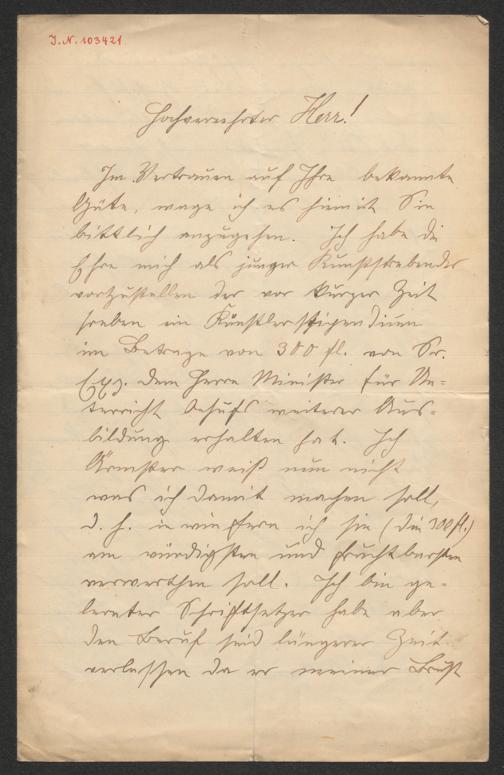 J.N. 103421
Hochverehrter Herr!
Im Vertrauen auf Ihre bekannte
Güte, wage ich es hiemit Sie
bittlich anzugehen. Ich habe die
Ehre mich als junger Kunststrebender
vorzustellen der vor kurzer Zeit
soeben ein Künstlerstipendium
im Betrage von 300 fl. von Sr.
Exz. dem Herrn Minister für Un-
terricht behufs weiterer Aus-
bildung erhalten hat. Ich
Ärmster weiß nun nicht
was ich damit machen soll,
d. h. inwiefern ich sie (die 300 fl.)
am würdigsten und fruchtbarsten
verwerthen soll. Ich bin ge-
lernter Schriftsetzer habe aber
den Beruf seid längerer Zeit
verlassen da er meiner Brust